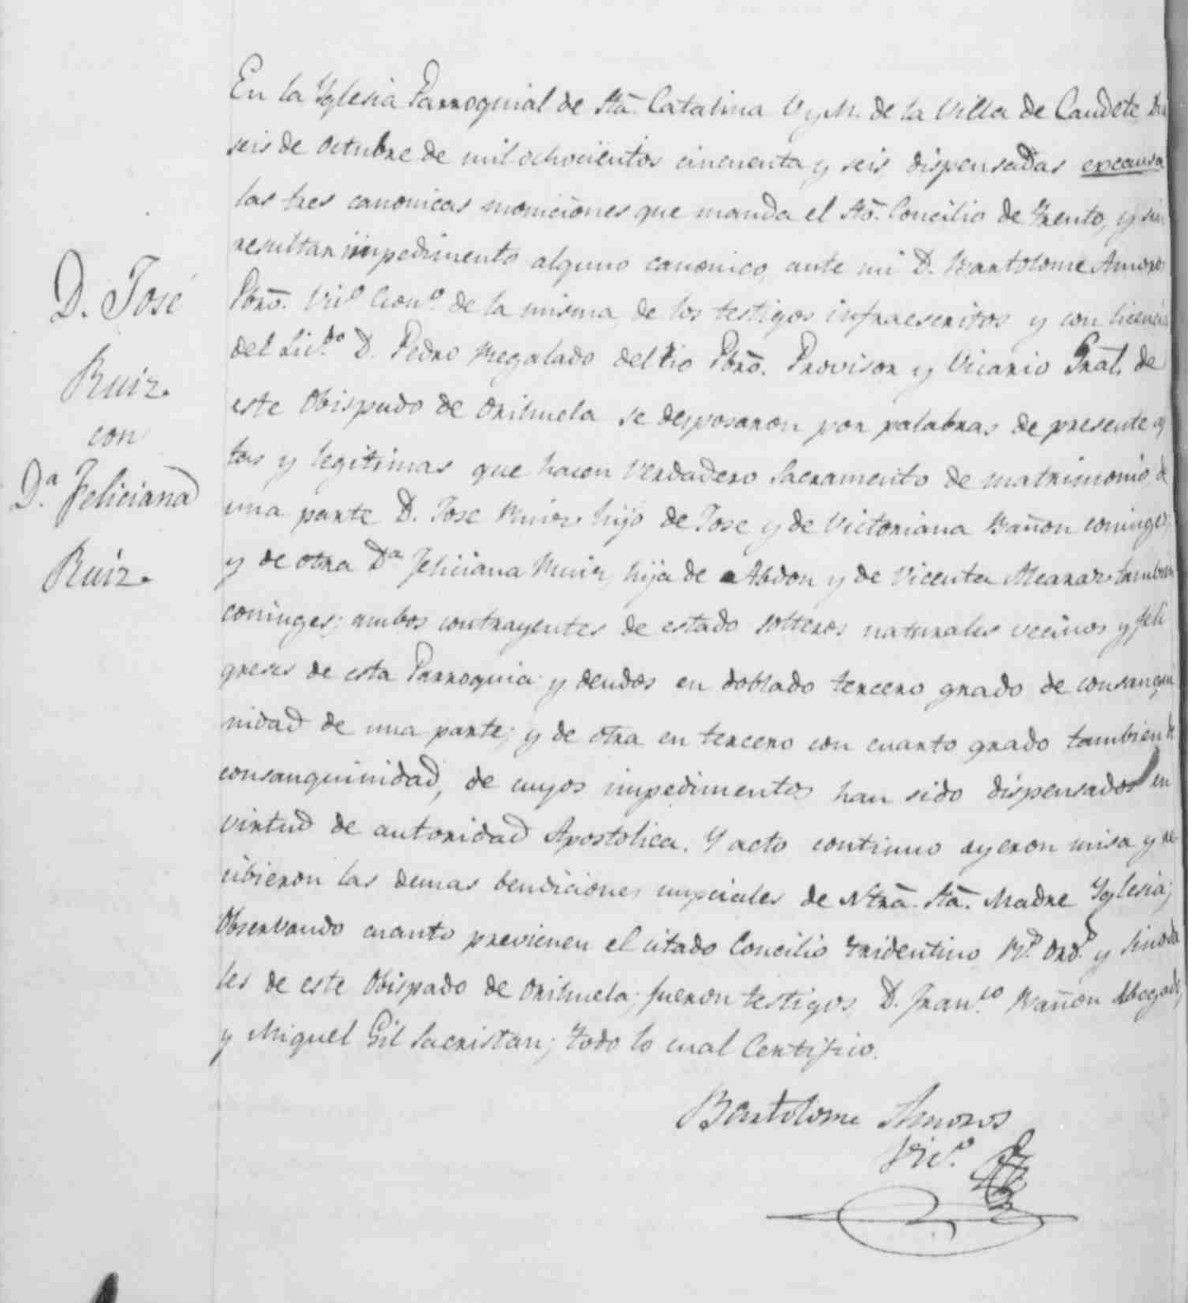 D. José
Ruiz.
con
D.ª Feliciana
Ruiz.
En la Yglesia Parroquial de Stã. Catalina V y M. de la Villa de Caudete
seis de Octubre de mil ochocientos cincuenta y seis dispensadas excausa
las tres canonicas moniciones que manda el Stõ. Concilio de Trento, y sin
resultar impedimento alguno canonico, ante mi D. Bartolome Amoros
Pbrõ. Vic.º Econ.º de la misma, de los testigos infraescritos y con licencia
del Lic.do D. Pedro Regalado del Rio Pbrõ. Provisor y Vicario Gral. de
este Obispado de Orihuela se desposaron por palabras de presente ap
tas y legitimas que hacen verdadero Sacramento de matrimonio, d
una parte D. Jose Ruiz, hijo de Jose y de Victoriana Bañon coniuges,
y de otra D.ª Feliciana Ruiz, hija de Abdon y de Vicenta Alcaraz tambien
coniuges; ambos contrayentes de estado solteros naturales vecinos y feli
greses de esta Parroquia y deudos en doblado tercero grado de consangui
nidad de una parte; y de otra en tercero con cuarto grado tambien de
consanguinidad, de cuyos impedimentos han sido dispensados en
virtud de autoridad Apostolica. Y acto continuo oyeron misa y re
cibieron las demas bendiciones nupciales de Ntrã. Stã. Madre Yglesia;
Observando cuanto previenen el citado Concilio Tridentino R.s Ord.s y Sinoda
les de este Obispado de Orihuela; fueron testigos D. Fran.co Bañon Abogado,
y Miguel Gil Sacristan; todo lo cual Certifico.
Bartolome Amoros
Vic.º